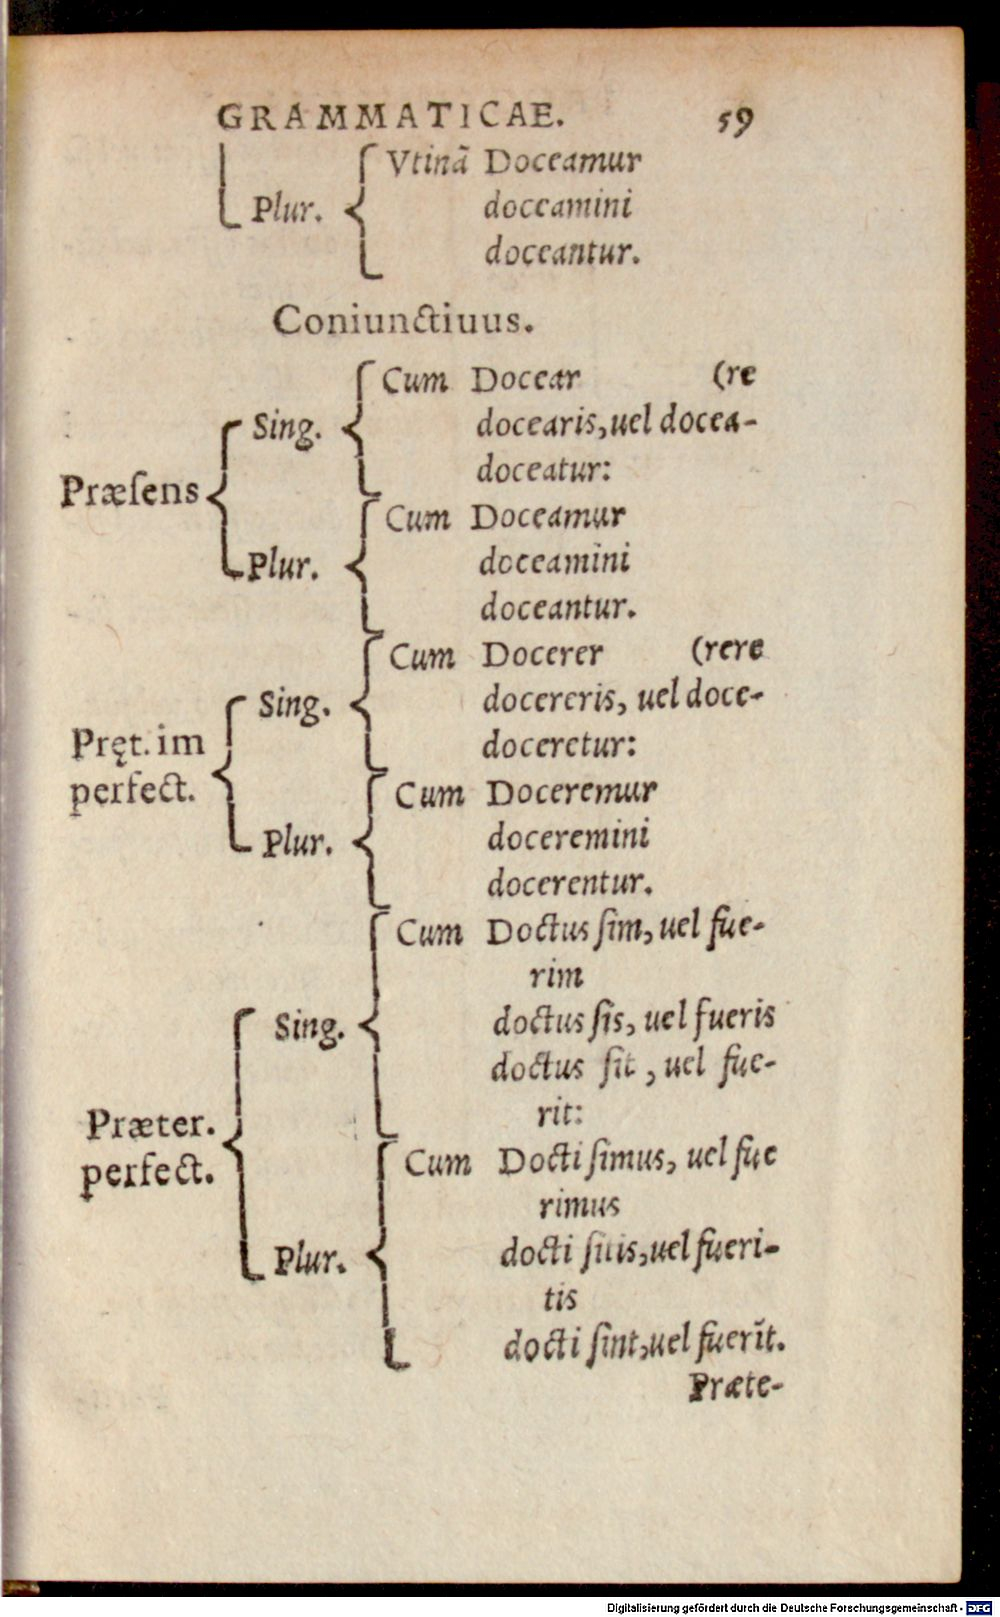 GRAMMATICAE. 59
Vtinã Doceamur
Plur. doceamini
doceantur.
Coniunctiuus.
Cum Docear (re
Sing. docearis, uel docea-
doceatur:
Præſens
Cum Doceamur
Plur. doceamini
doceantur.
Cum Docerer (rere
Sing. docereris, uel doce-
doceretur:
Pręt. im
perfect.
Cum Doceremur
Plur. doceremini
docerentur.
Cum Doctus ſim, uel fue-
rim
Sing. doctus ſis, uel fueris
doctus ſit, uel fue-
rit:
Præter.
perfect.
Cum Docti ſimus, uel fue
rimus
Plur. docti ſitis, uel fueri-
tis
docti ſint, uel fuerĩt.
Præte-
Digitalisierung gefördert durch die Deutsche Forschungsgemeinschaft - DFG